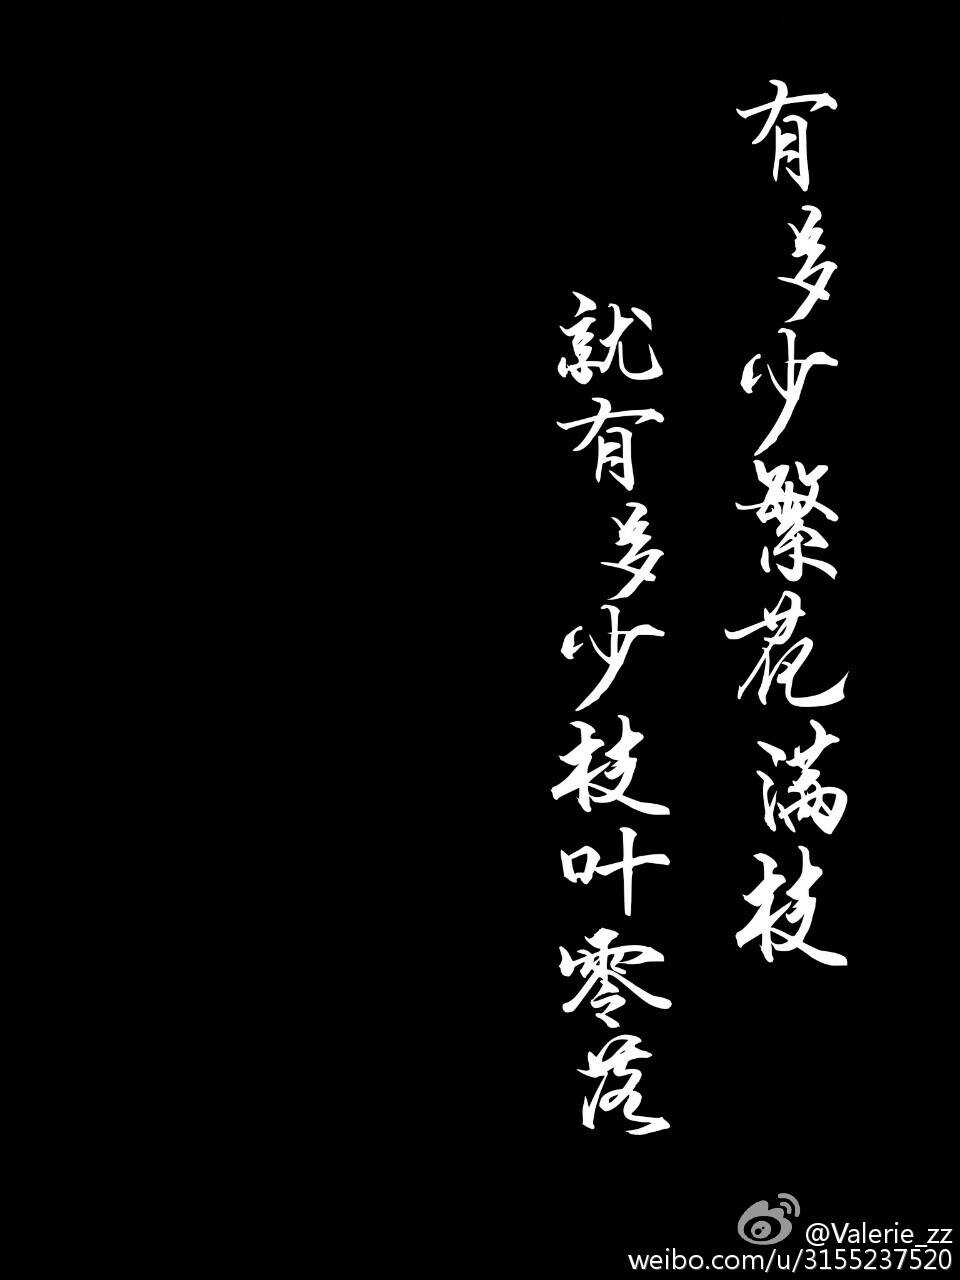 有多少繁花满枝
就有多少枝叶零落
@Valerie_zz
weibo.com/u/3155237520